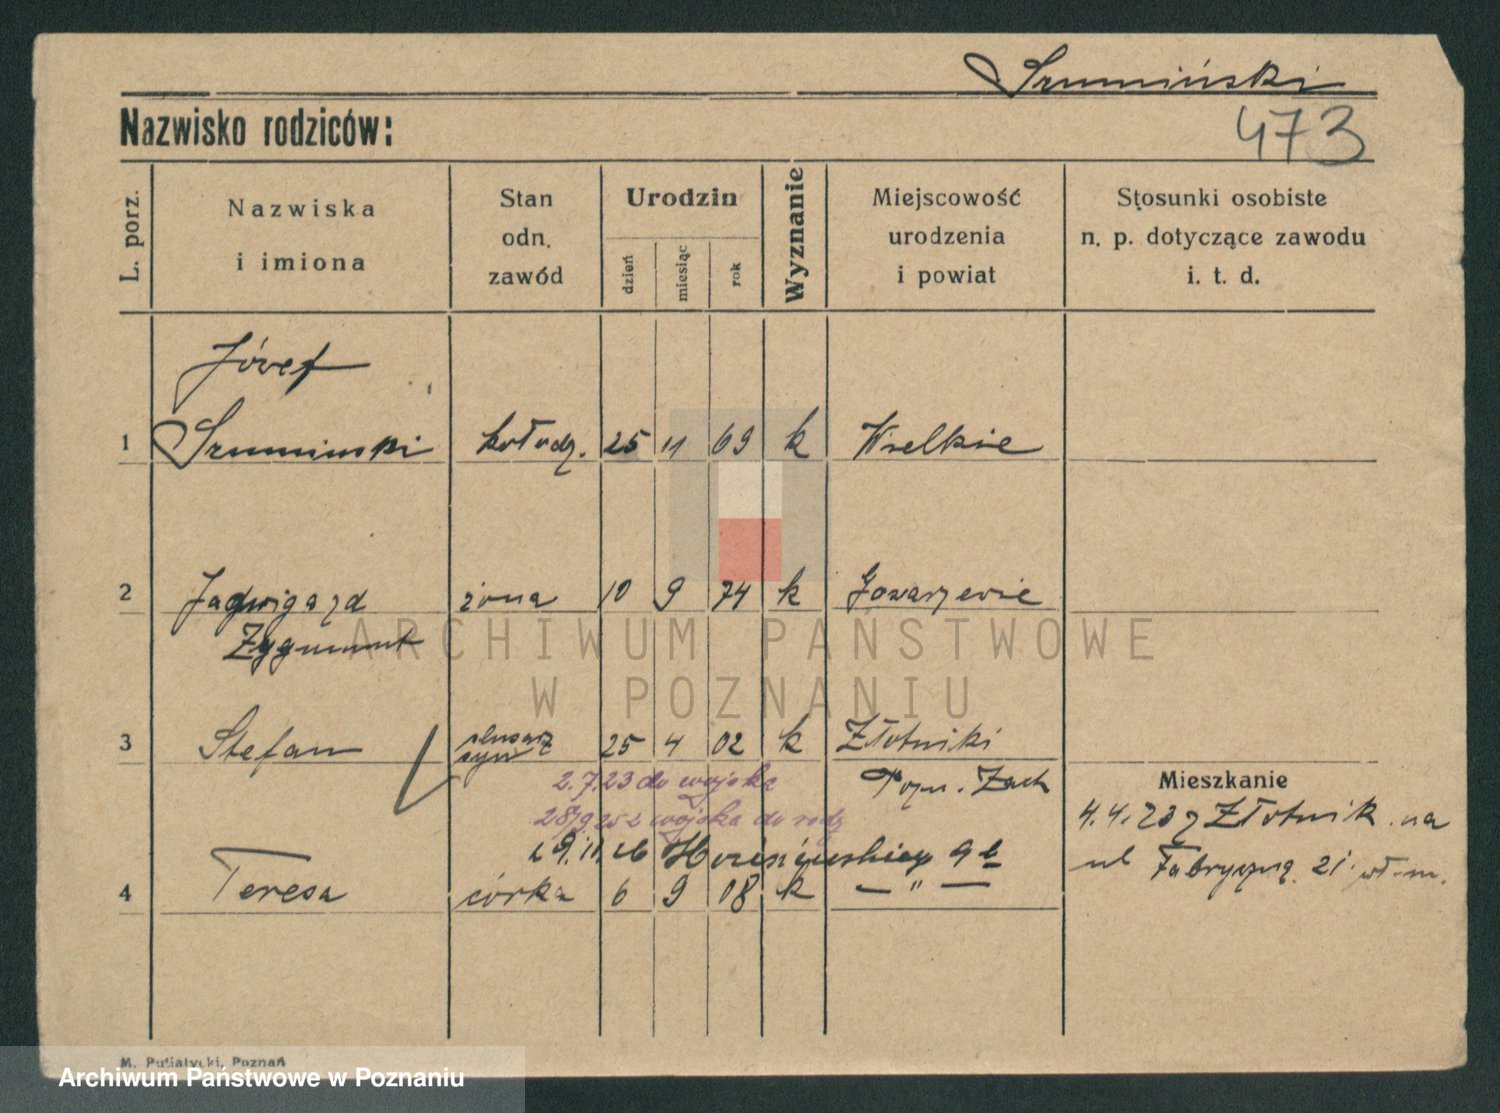 Szumiński
Nazwisko rodziców:
473
L. porz.
Nazwiska
i imiona
Stan
odn.
zawód
Urodzin
dzień
miesiąc
rok
Wyznanie
Miejscowość
urodzenia
i powiat
Stosunki osobiste
n. p. dotyczące zawodu
i. t. d.
Józef
1 Szumiński kołodz. 25 11 69 k Wielkie
2 Jadwiga zd żona 10 9 74 k Gowarzewie
Zygmunt
ślusarz
3 Stefan syn 25 4 02 k Złotniki
Pozn. Zach
2.7.23 do wojska
Mieszkanie
4.4.23 z Złotnik na
z wojska do rodz
ul Fabryczną 21
4 Teresa córka 6 9 08 k — " —
M. Putiatycki, Poznań
ARCHIWUM PAŃSTWOWE
W POZNANIU
Archiwum Państwowe w Poznaniu